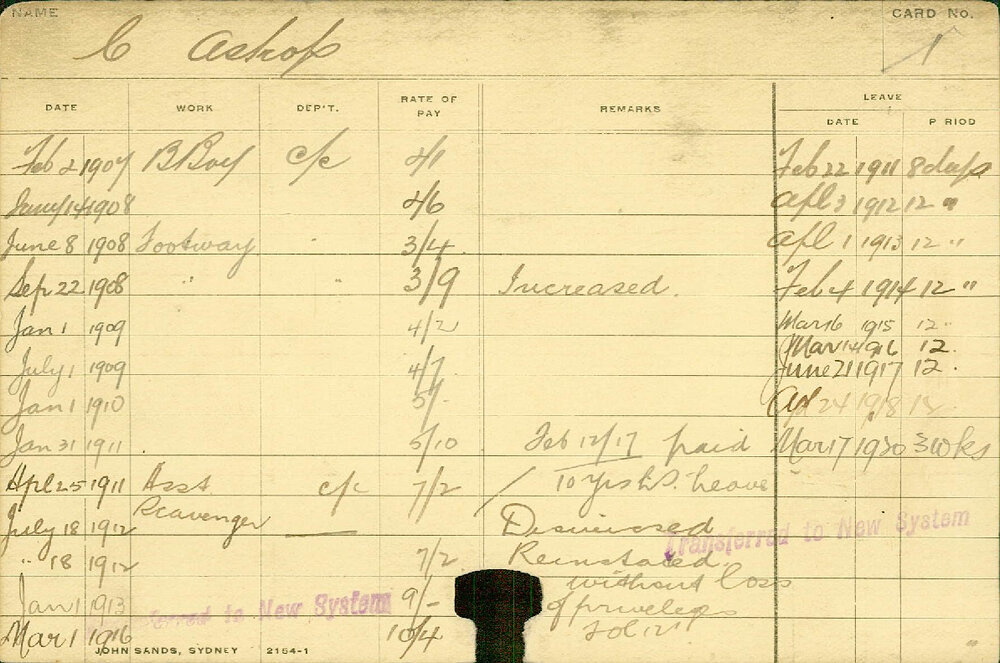 NAME CARD No.
C Astrop 1
DATE WORK DEP'T. RATE OF PAY REMARKS LEAVE
DATE P RIOD
Feb 2 1907 B Boy c/c 2/1 Feb 22 1911 8 days
Jany 14 1908 2/6 Apl 3 1912 12 "
June 8 1908 Footway " 3/4 Apl 1 1913 12 "
Sep 22 1908 " " 3/9 Increased. Feb 4 1914 12 "
Jan 1 1909 4/2 Mar 16 1915 12 "
Mar 14 1916 12.
July 1 1909 4/7 June 21 1917 12.
Jan 1 1910 5/- Apl 24 1918 12
Jan 31 1911 5/10 Feb 12/17 paid Mar 17 1920 3 wks
Apl 25 1911 Asst c/c 7/2 / 10 yrs L.S. Leave
Scavenger
July 18 1912 — Dismissed
Transferred to New System
" 18 1912 7/2 Reinstated
without loss
Jan 1 1913 9/- of priveleges
ferred to New System
Mar 1 1916 10/4
JOHN SANDS, SYDNEY 2154-1